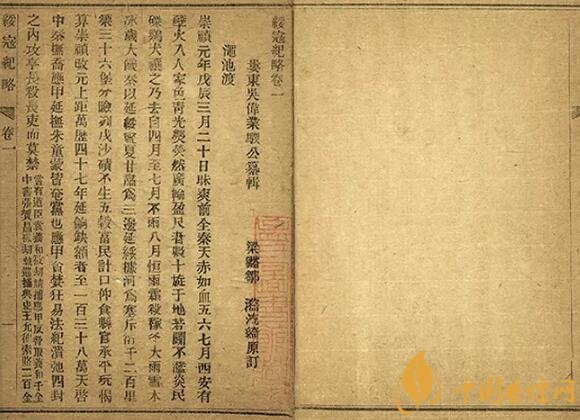 綏寇紀略卷一
婁東吳偉業駿公纂輯
梁谿鄒 漪流綺原訂
澠池渡
崇禎元年戊辰三月二十日昧爽前全秦天赤如血五六七月西安有
孽火入人家色青光熒熒然廣輪盈尺者數十旋于地若團不爇炎民
磔鷄犬禳之乃去自四月至七月不雨八月恒雨霜殺稼冬大雨雪木
冰歲大饑秦以延綏寧夏甘肅爲三邊延綏據河爲塞斥衍千二百里
築三十六堡分險列戍沙磧不生五穀富民計口仰食縣官承平玩愒
算崇禎改元上距萬歷四十七年延餉缺額者至一百三十八萬天啓
中秦撫喬應甲延撫朱童蒙皆奄黨也應甲貪婪狂易法紀潰弛四封
之內攻亭長殺長吏而莫禁
綏寇紀略 卷一 一